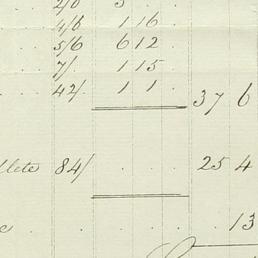 2/6 3
4/6 1 16
5/6 6 12
7/. 1 15
42/. 1 1 . 37 6
plete 84/ . . . 25 4
e . . . . . 13